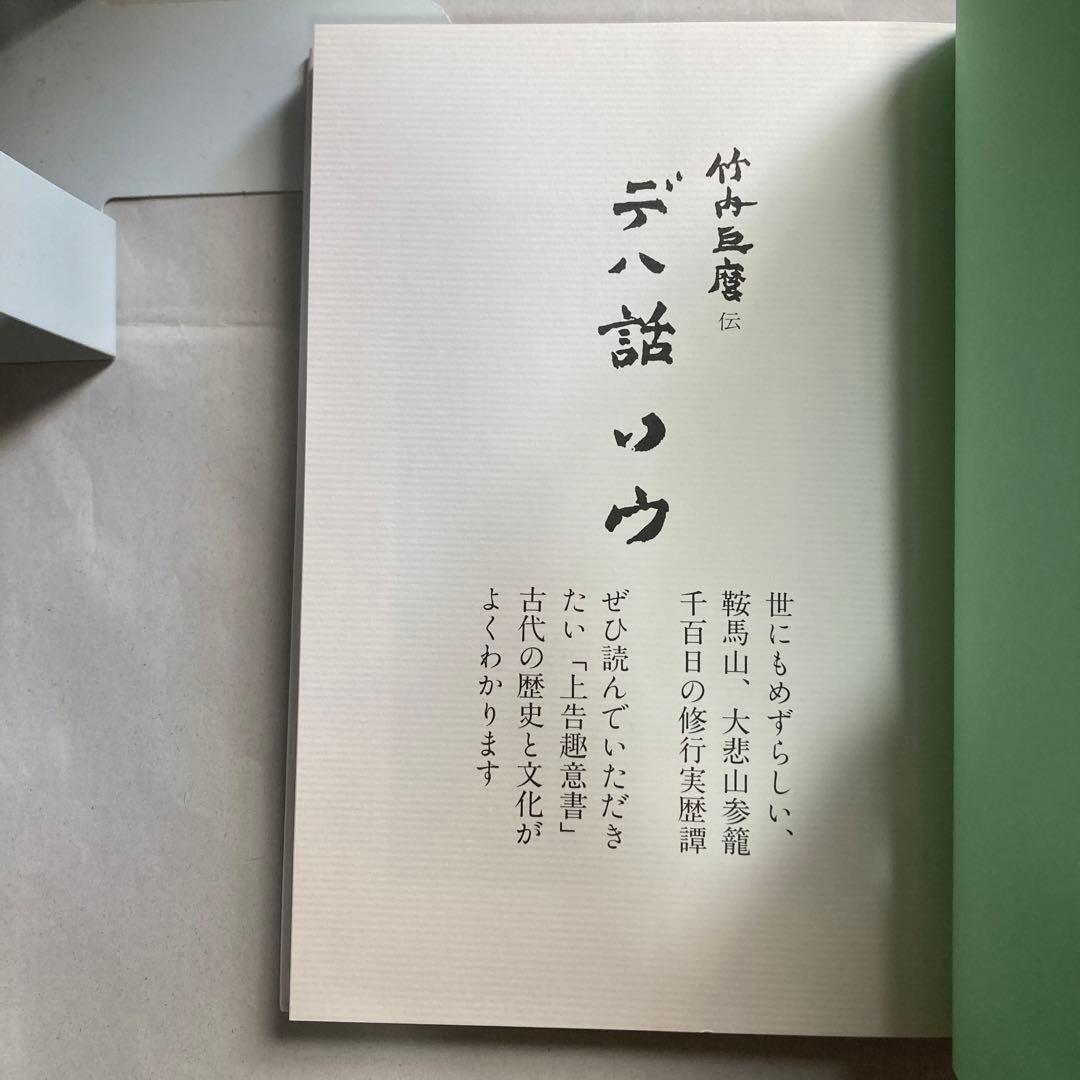 竹内巨麿伝
デハ話ソウ
世にもめずらしい、
鞍馬山、大悲山参籠
千百日の修行実歴譚
ぜひ読んでいただき
たい「上告趣意書」
古代の歴史と文化が
よくわかります